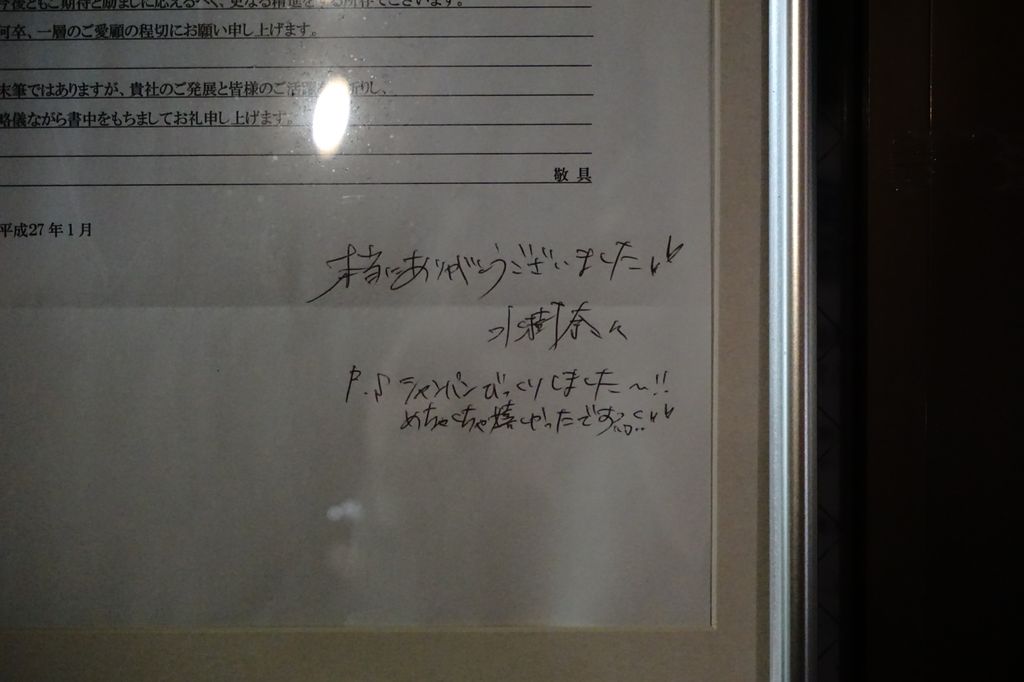 今後ともご期待と励ましに応えるべく、更なる精進をする所存でございます。
何卒、一層のご愛顧の程切にお願い申し上げます。
末筆ではありますが、貴社のご発展と皆様のご活躍をお祈りし、
略儀ながら書中をもちましてお礼申し上げます。
敬 具
平成27年1月
本当にありがとうございました
水樹奈々
P.S シャンパンびっくりしました〜!!
めちゃくちゃ嬉しかったです